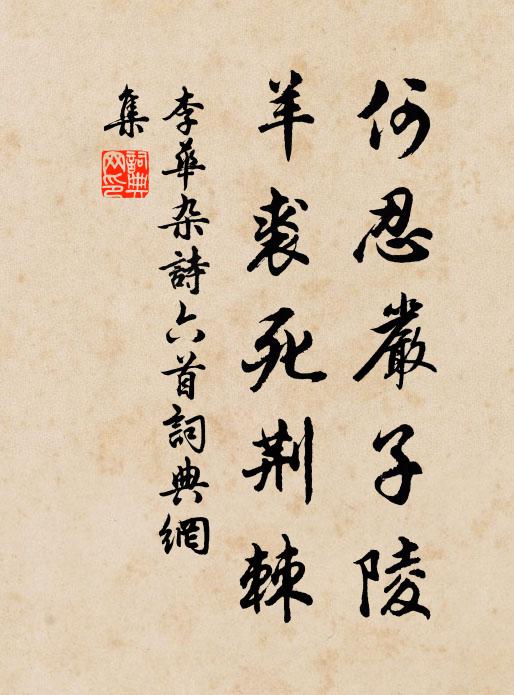 何忍嚴子陵
羊裘死荆棘
李華杂詩六首詞典網
集
詞典
网印